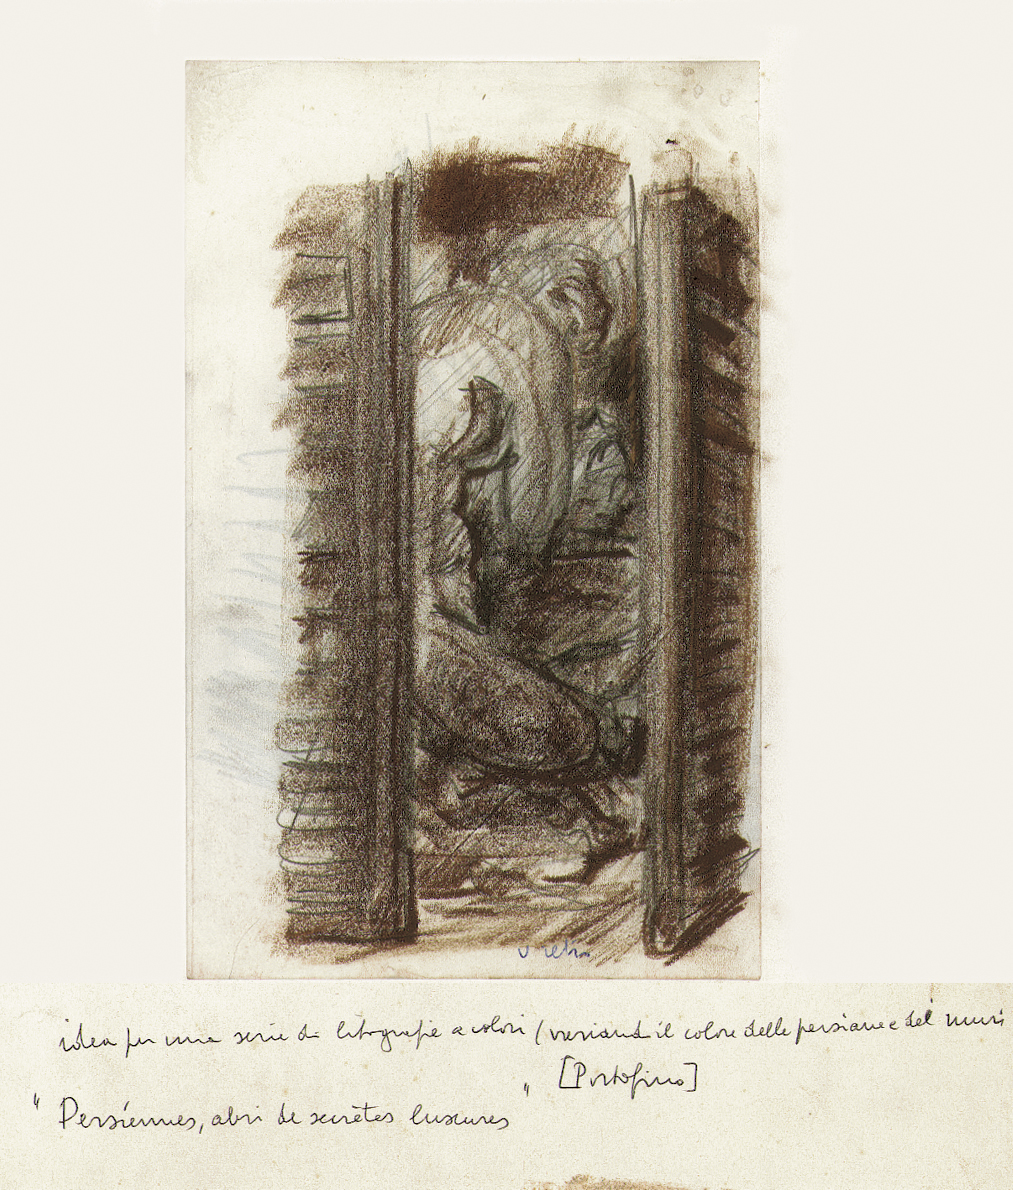 v. retro
idea per una serie di litografie a colori (variando il colore delle persiane e dei muri
[Portofino]
"Persiennes, abri de secrètes luxures"